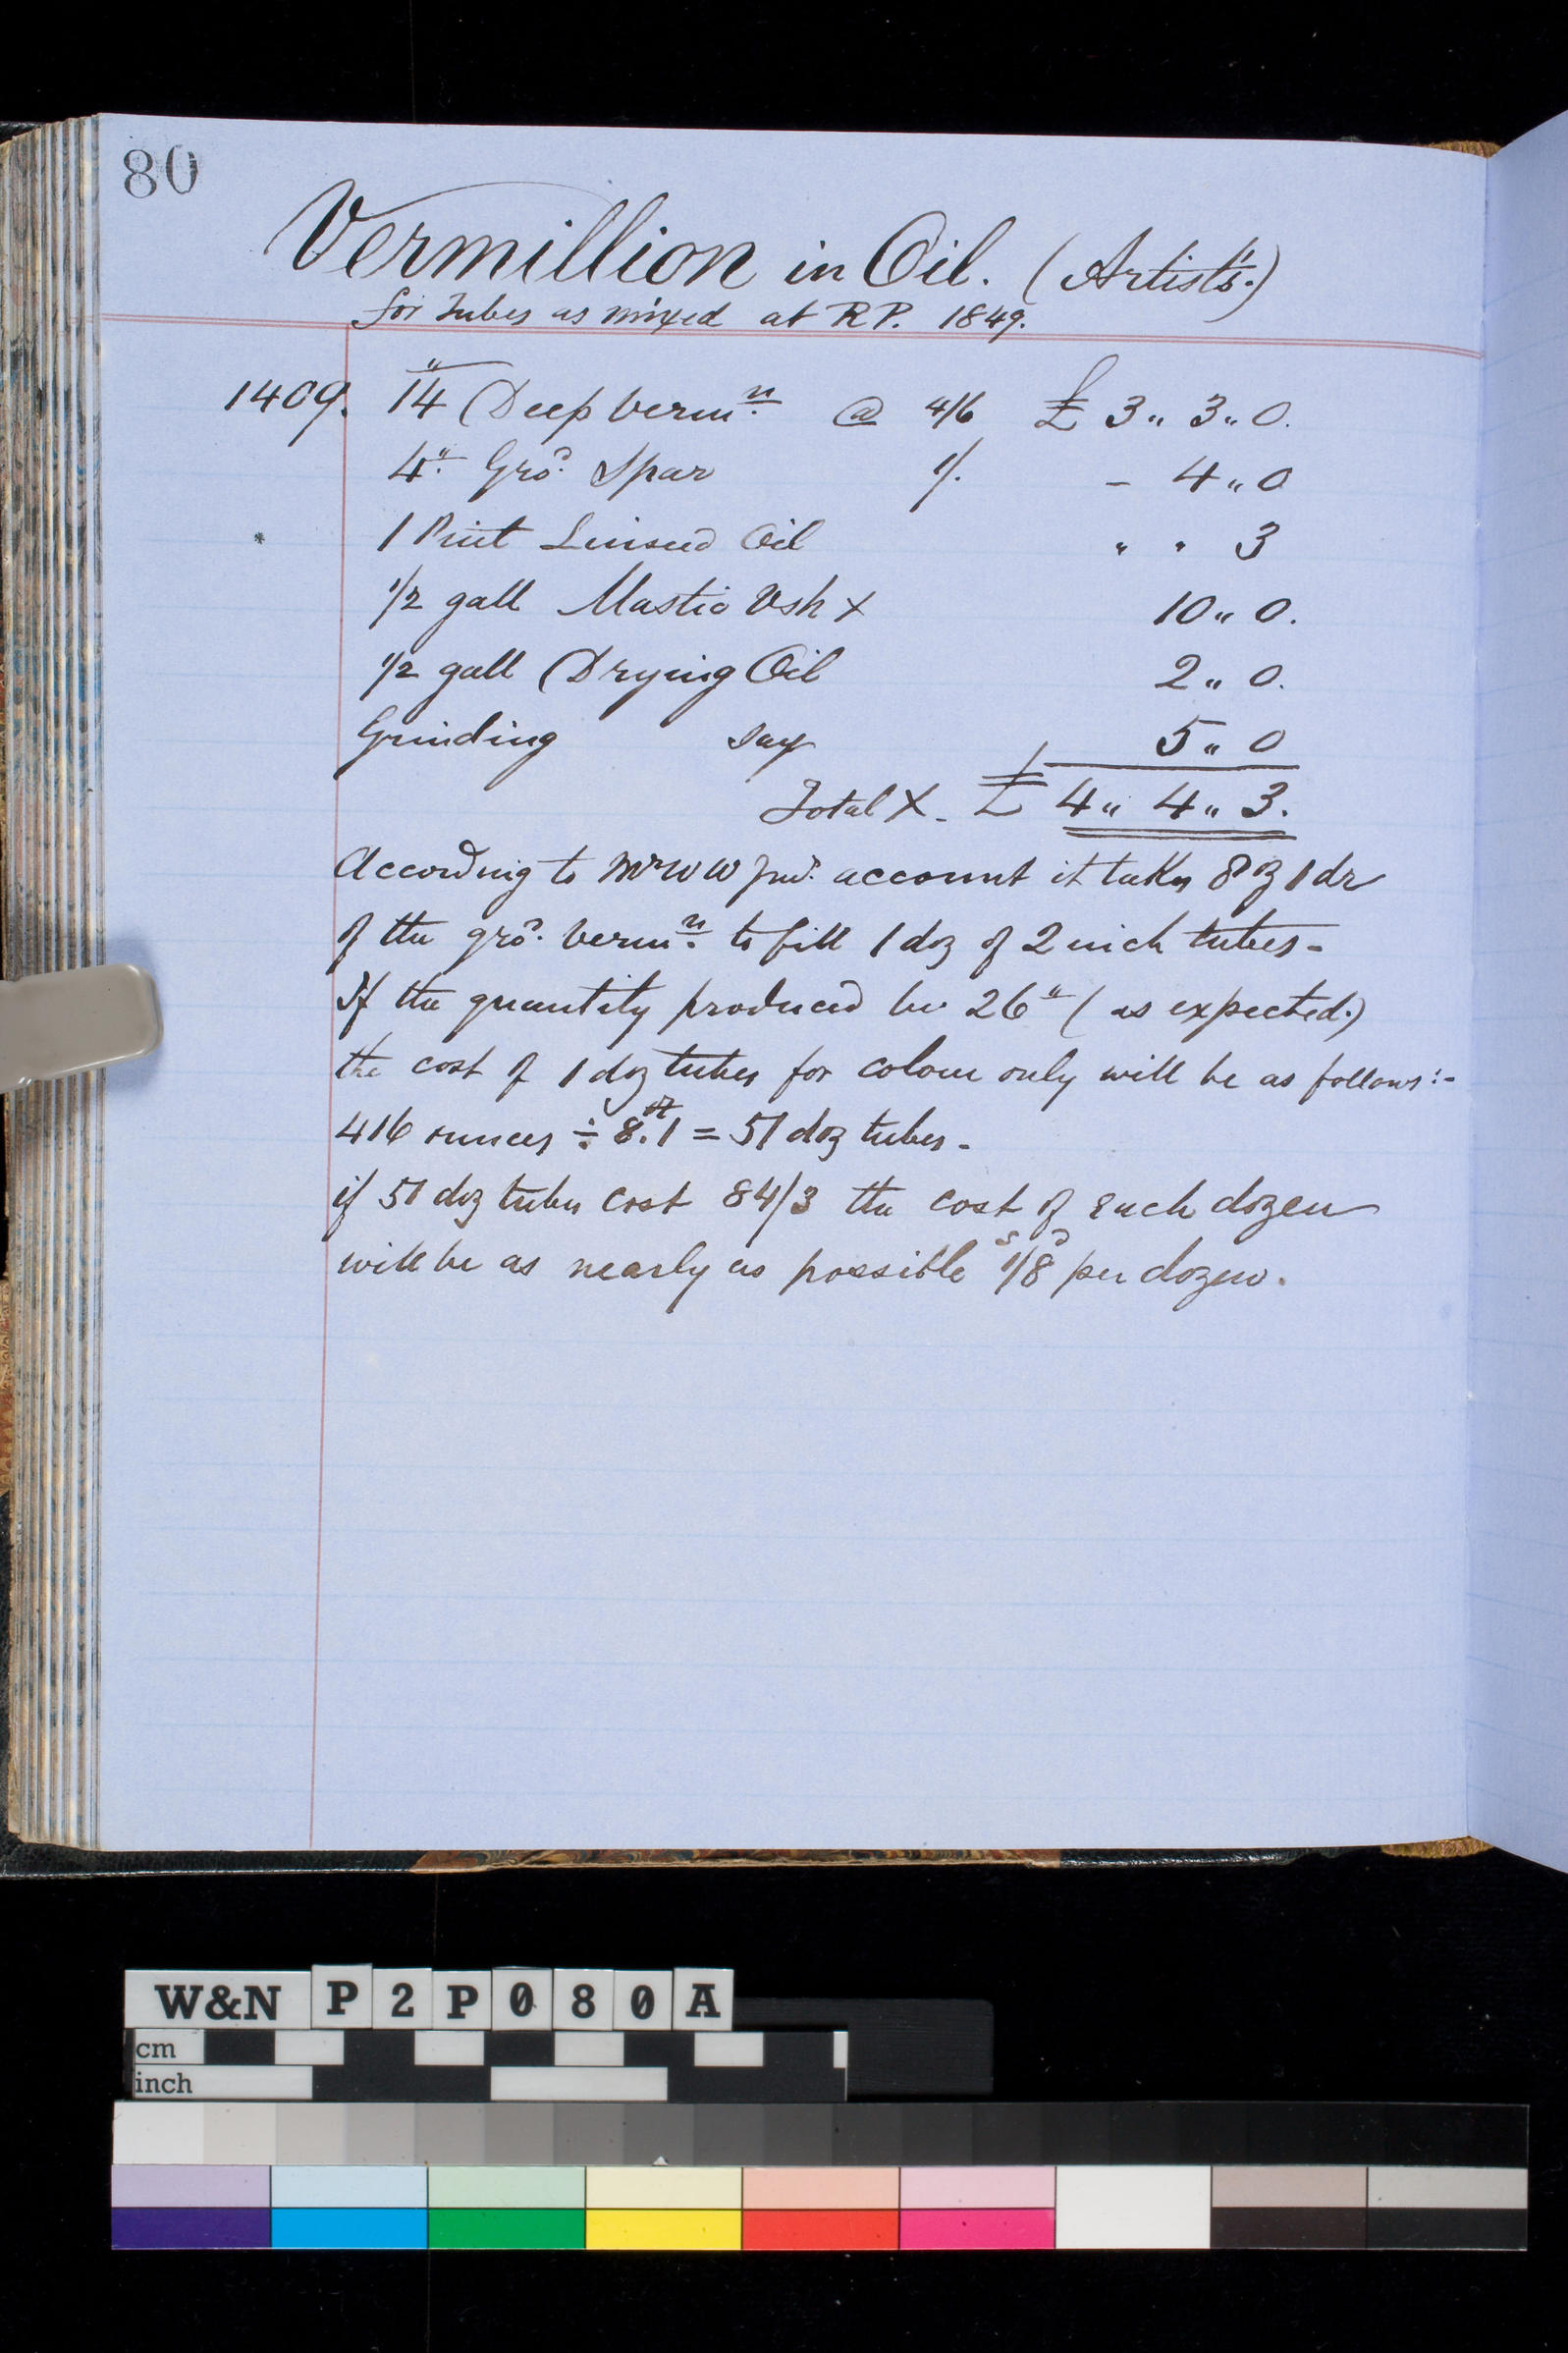 80
Vermillion in Oil. (Artists'.)
for Tubes as mixed at RP. 1849.
1409. 14" Deep Verm<u>n</u>. @ 4/6 £ 3 " 3 " 0.
4". Gro<sup>d</sup>. Spar 1/. - 4 " 0
1 Pint Linseed Oil " " 3
1/2 gall Mastic Vsh X 10 " 0.
1/2 gall Drying Oil 2 " 0.
Grinding say 5 " 0
Total X - £ 4 " 4 " 3.
According to Mr W W Junr. account it takes 8 oz 1 dr
of the gro<sup>d</sup>. Verm<u>n</u>. to fill 1 doz of 2 inch tubes -
If the quantity produced be 26" (as expected.)
the cost of 1 doz tubes for colour only will be as follows:-
416 ounces ÷ 8.1 = 51 doz tubes -
if 51 doz tubes cost 84/3 the cost of each dozen
will be as nearly as possible 1s/8d per dozen.
W&N P2P080A
cm
inch